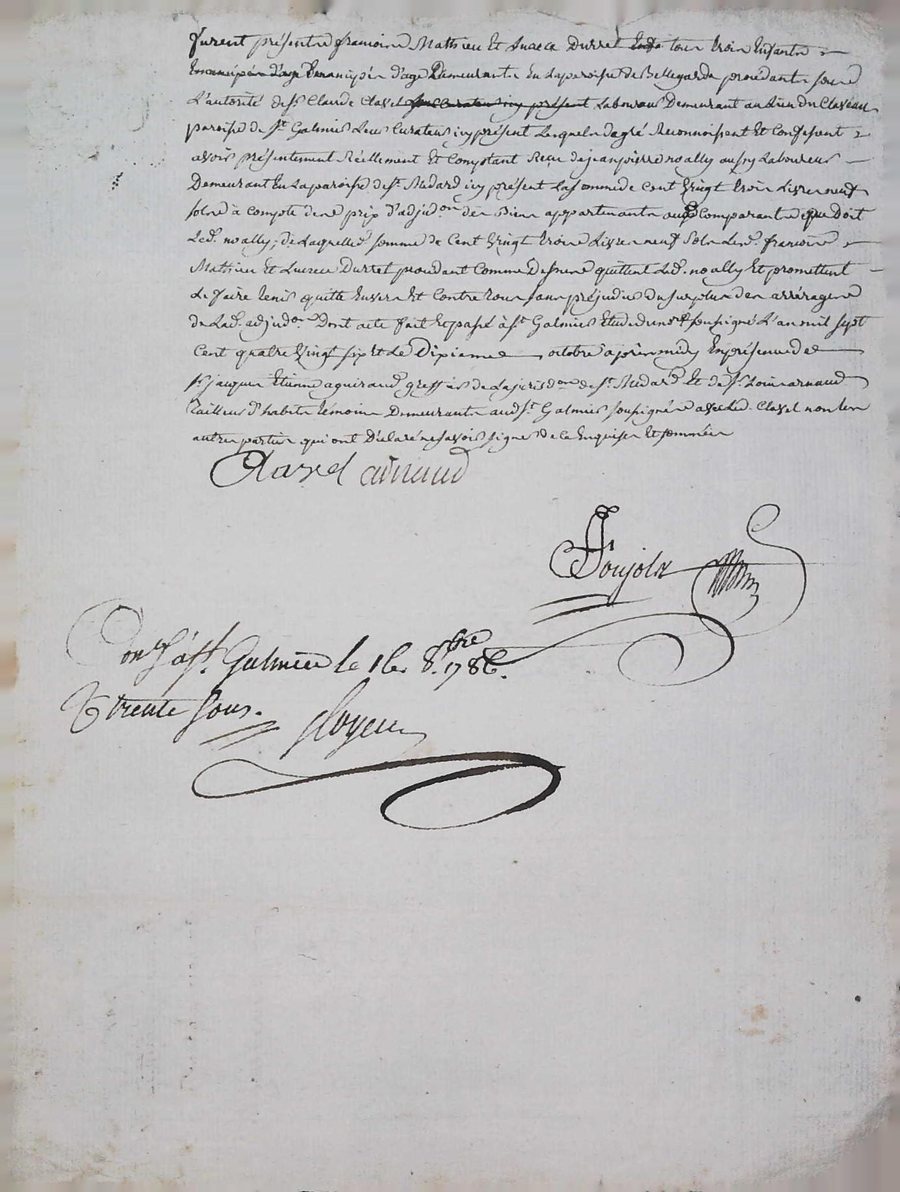 furent présents françoise Mathieu Et Durret tous trois Enfants
Emancipés d'age Emancipés d'age Demeurants En la paroisse de Bellegarde procedants sous
L'autorité de Sr. Claude Clavel son Curateur icy présent Laboureur Demeurant au Lieu du Claveau
paroisse de St. Galmier Leur Curateur icy présent Lesquels de gré Reconnoissent Et Confessent
avoir présentement Réellement Et Comptant Reçu de jean pierre noally aussy Laboureur
Demeurant En La paroisse de St. Médard icy présent La somme de Cent Vingt trois Livres neuf
sols à compte de prix d'adjudon. des Biens appartenants aux Comparants que doit
Led. noally; de Laquelle somme de Cent Vingt trois Livres neuf sols Les d. françoise
Mathieu Et Durret procedant Comme Dessus quittent Led. noally Et promettent
Le faire tenir quitte Envers Et Contre tous sans préjudice du surplus des arrérages
de Lad. adjudon. Dont acte fait Et passé à St. Galmier Etude du nre. soussigné L'an mil sept
Cent quatre Vingt six Et Le Dixieme octobre après midy En présence de
Sr. jacques Etienne aguiraud greffier de La jurisdon. de St. Médard Et de Sr. Louis arnaud
tailleur d'habits témoins Demeurants aud. St. Galmier soussignés avec Led. Clavel non les
autres parties qui ont Déclaré ne savoir signer de ce Enquises Et sommées
Clavel arnaud
Poujols
Con. à St. Galmier le 16 8bre 1786.
R trente sous.